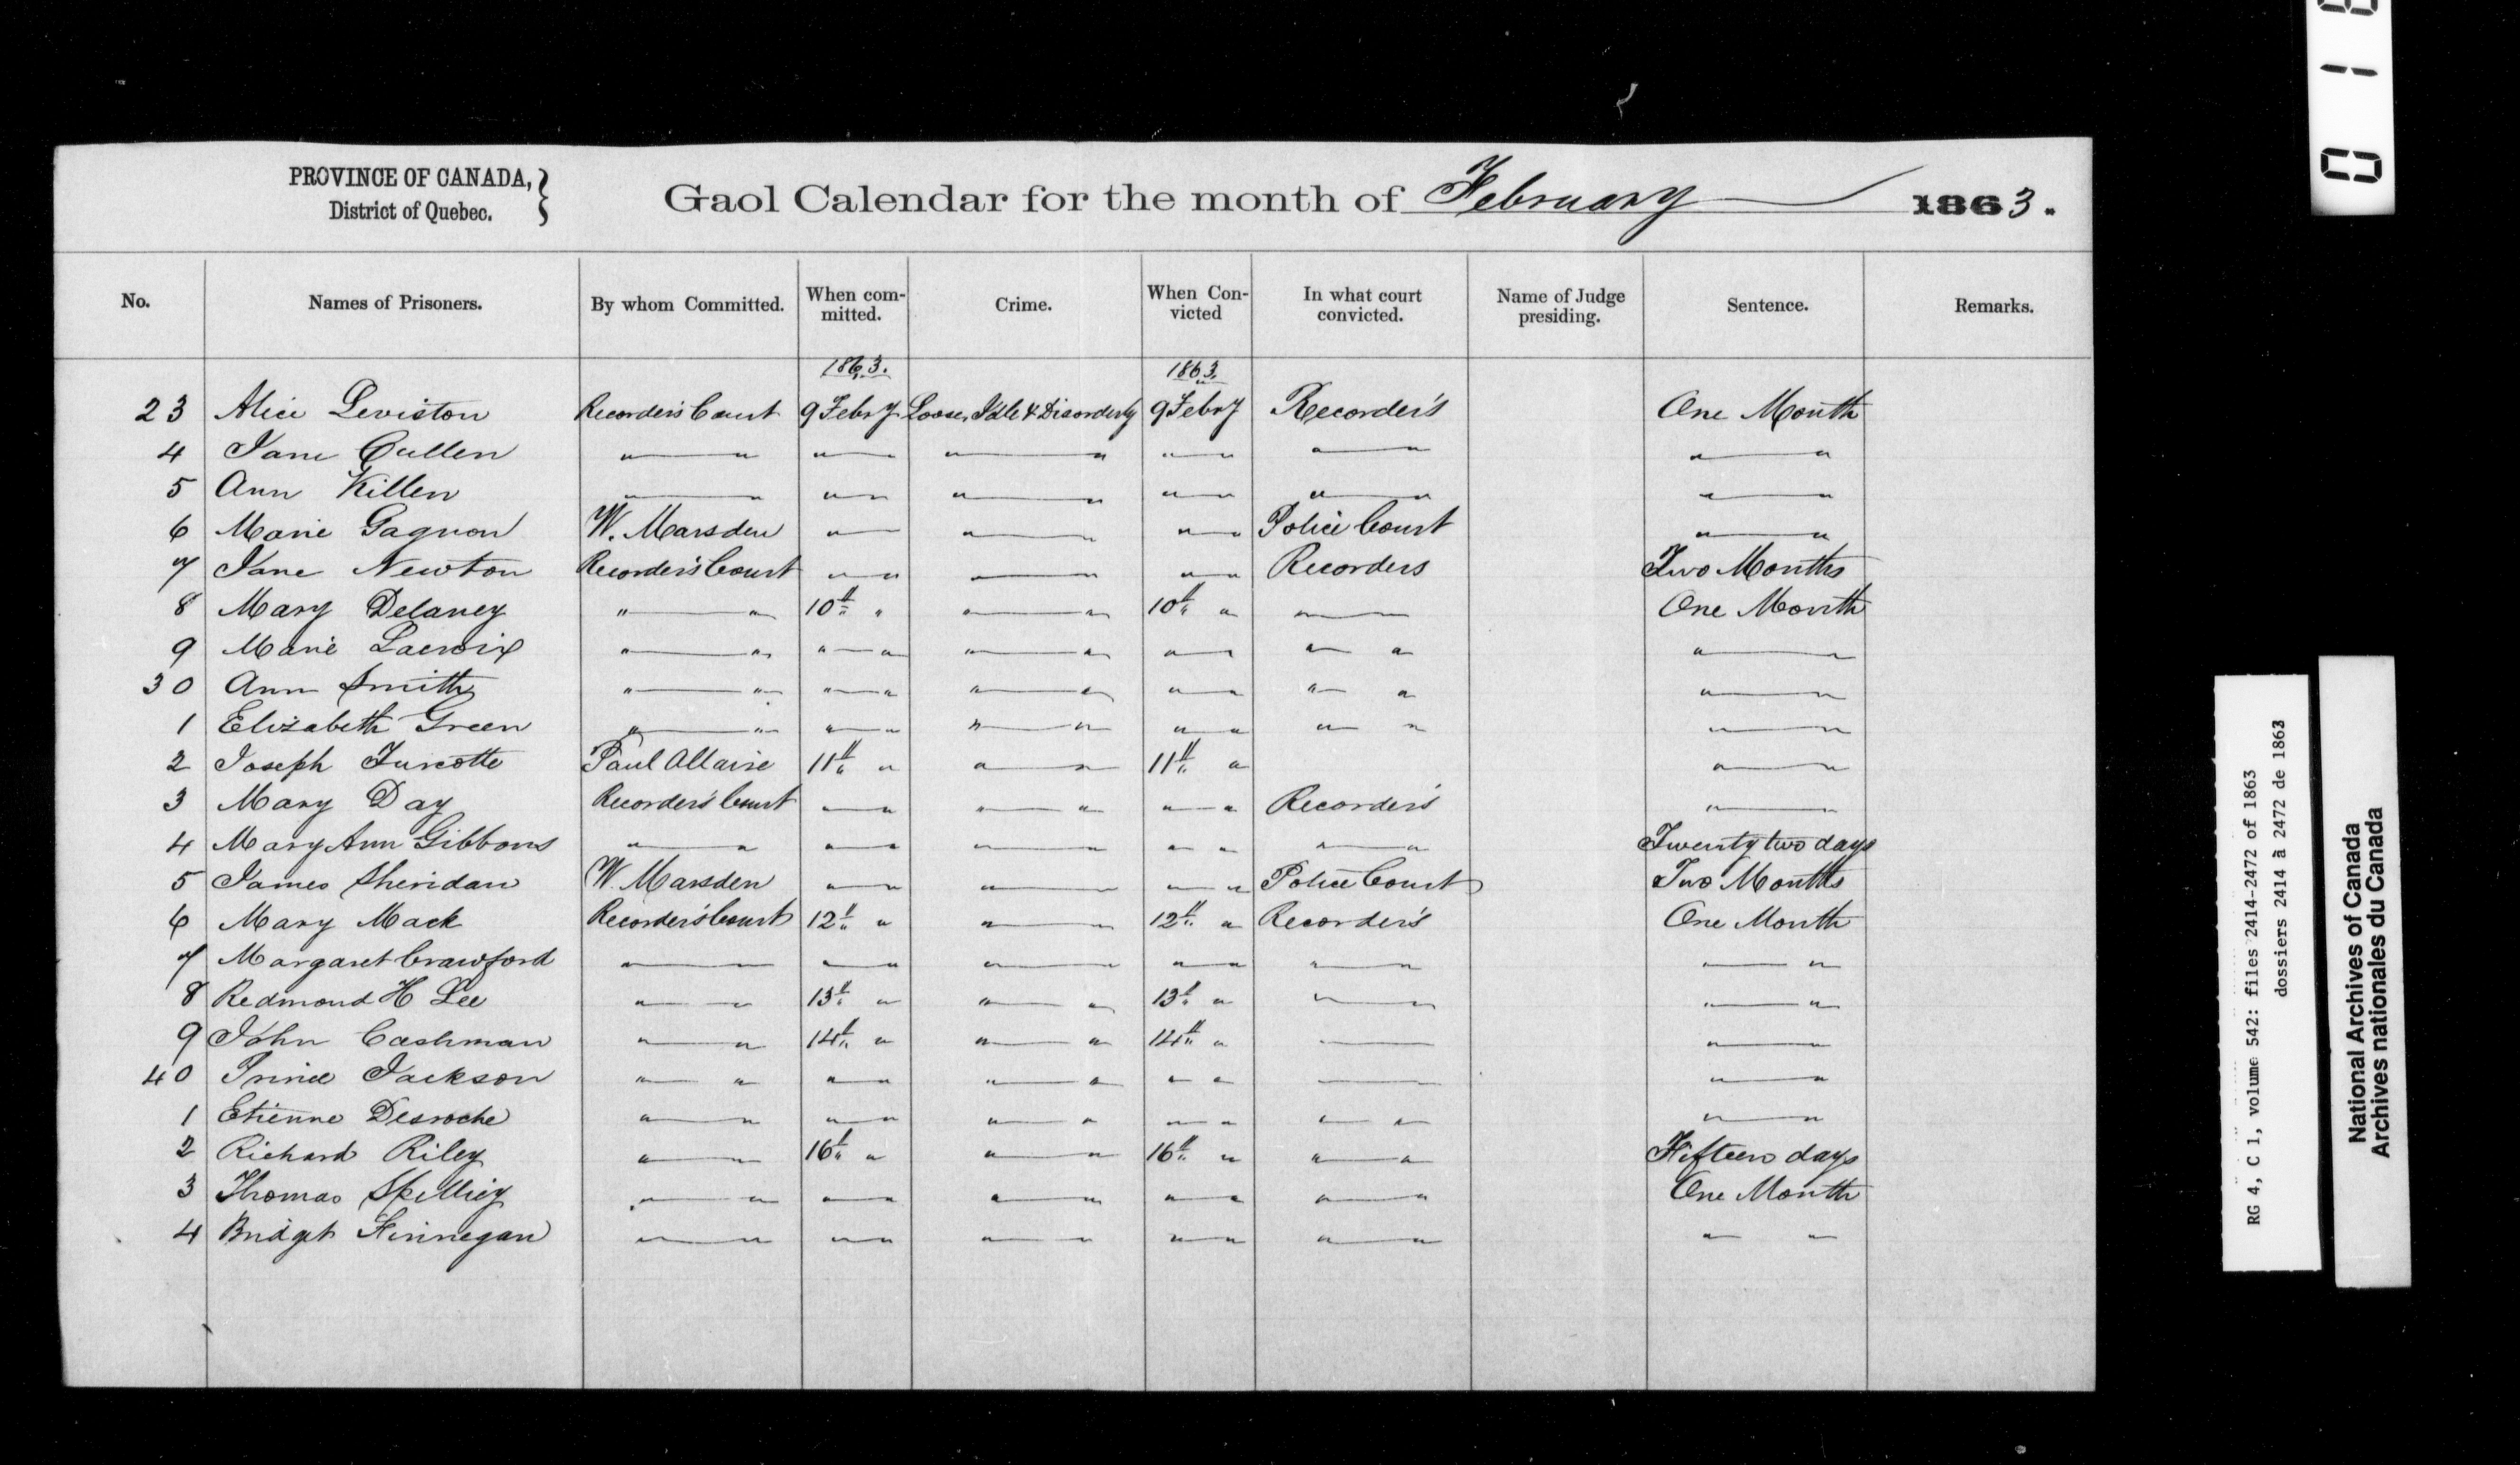 PROVINCE OF CANADA,
District of Quebec.
Gaol Calendar for the month of February 1863.
No. Names of Prisoners. By whom Committed. When committed. Crime. When Convicted In what court convicted. Name of Judge presiding. Sentence. Remarks.
1863. 1863.
23 Alice Leviston Recorder's Court 9 Febry Loose, Idle & Disorderly 9 Febry Recorder's One Month
4 Jane Cullen " " " " " " " " " " " "
5 Ann Killen " " " " " " " " " " " "
6 Marie Gagnon W. Marsden " " " " " Police Court " "
7 Jane Newton Recorder's Court " " " " " " Recorders Two Months
8 Mary Delaney " " 10th " " " 10th " " One Month
9 Marie Lacroix " " " " " " " " " " " "
30 Ann Smith " " " " " " " " " " " "
1 Elizabeth Green " " " " " " " " " " " "
2 Joseph Turcotte Paul Allaire 11th " " " 11th " " "
3 Mary Day Recorder's Court " " " " " " Recorder's " "
4 Mary Ann Gibbons " " " " " " " " " " Twenty two days
5 James Sheridan W. Marsden " " " " " " Police Court Two Months
6 Mary Mack Recorder's Court 12th " " " 12th " Recorder's One Month
7 Margaret Crawford " " " " " " " " " " " "
8 Redmond H Lee " " 13th " " " 13th " " " " "
9 John Cashman " " 14th " " " 14th " " "
40 Prince Jackson " " " " " " " " " "
1 Etienne Desroche " " " " " " " " " " " "
2 Richard Riley " " 16th " " " 16th " " " Fifteen days
3 Thomas Skelliey " " " " " " " " " " One Month
4 Bridget Finnegan " " " " " " " " " " " "
RG 4, C 1, volume 542: files 2414-2472 of 1863
dossiers 2414 à 2472 de 1863
National Archives of Canada
Archives nationales du Canada